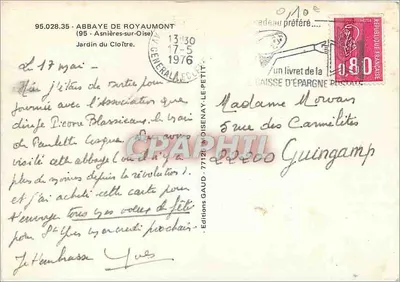 95.028.35 - ABBAYE DE ROYAUMONT
(95 - Asnières-sur-Oise)
Jardin du Cloître.
13:30
17-5
1976
Le 17 mai -
j'étais de sortie pour
journée avec l'Association que
dirige Pierre le mari
de Paulette nous
visité cette abbaye (où il n'y a
plus de moines depuis la révolution).
et j'ai acheté cette carte pour
t'envoyer tous mes voeux de fête
pour St Yves mercredi prochain.
Je t'embrasse Yves
Editions GAUD - 77120 MOISENAY-LE-PETIT
cadeau préféré....
un livret de la
CAISSE D'ÉPARGNE
0,80
Madame Morvan
5 rue des Carmélites
22200 Guingamp
CPAPHIL